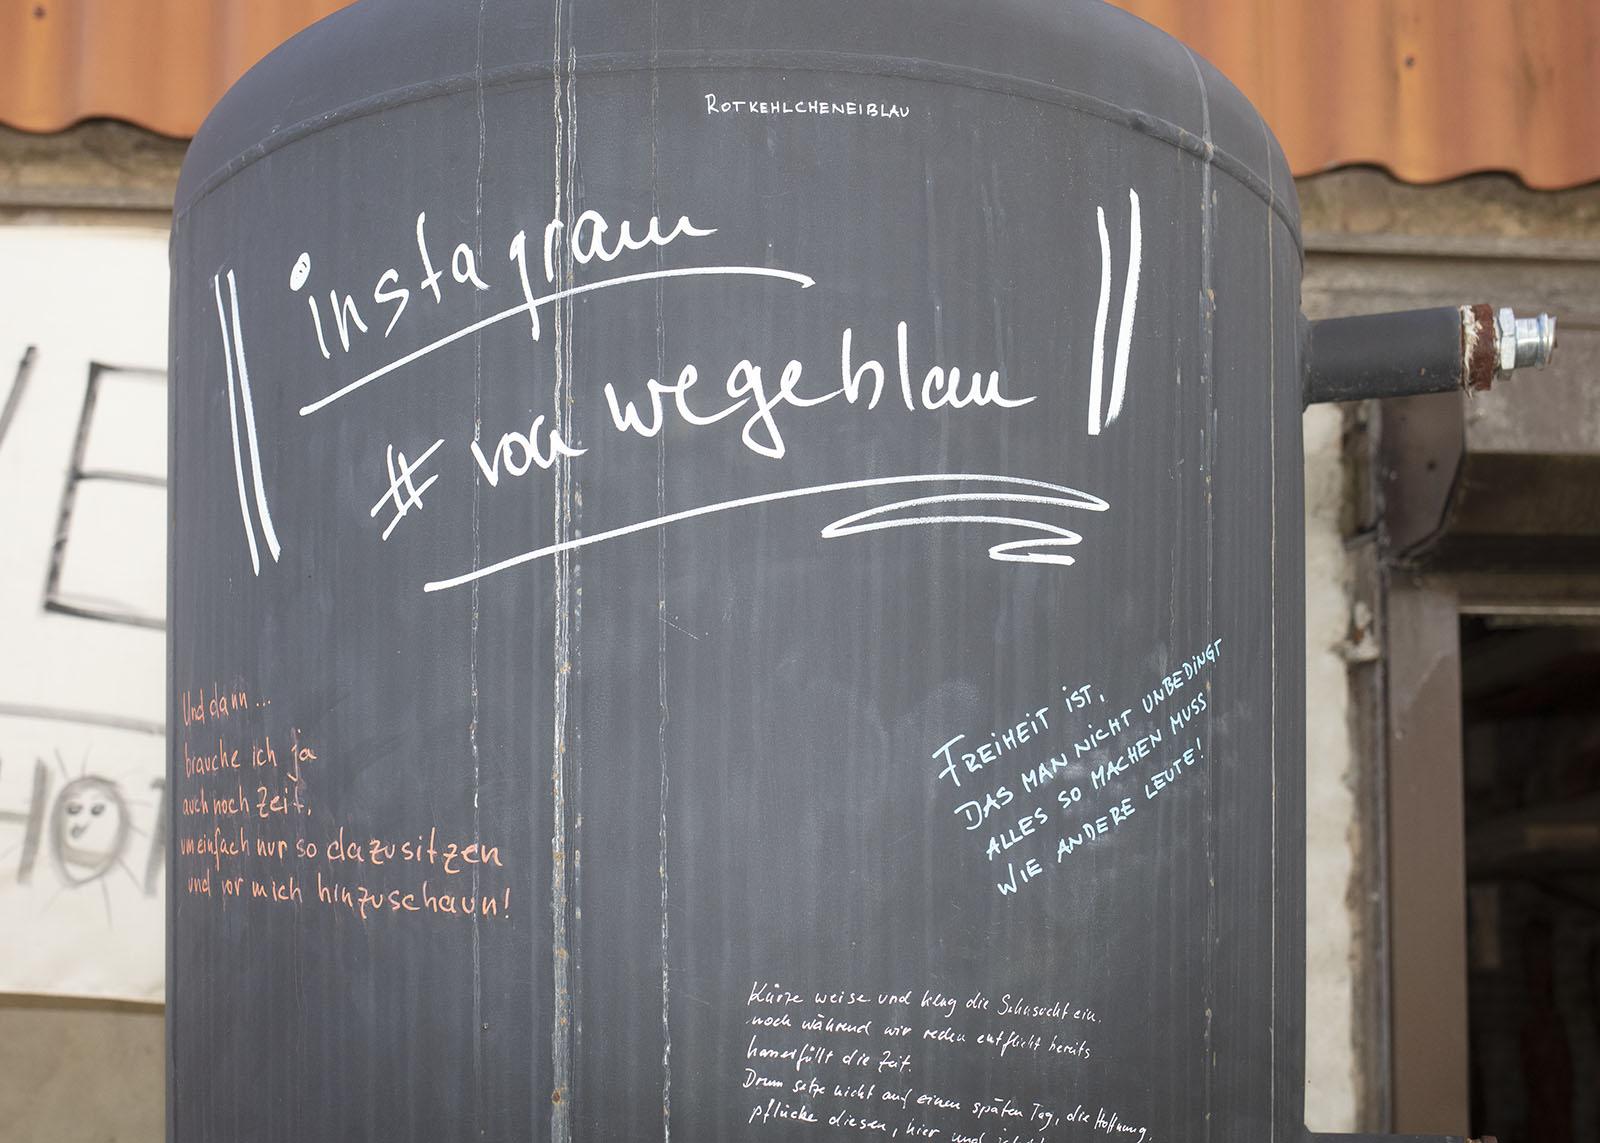 ROTKEHLCHENEIBLAU
instagram
# von wegeblau
Und dann ...
brauche ich ja
auch noch Zeit,
um einfach nur so dazusitzen
und vor mich hinzuschaun!
FREIHEIT IST,
DAS MAN NICHT UNBEDINGT
ALLES SO MACHEN MUSS
WIE ANDERE LEUTE!
Kürze weise und klug die Sehnsucht ein.
noch während wir reden entflieht bereits
hasserfüllt die Zeit.
Drum setze nicht auf einen späten Tag, die Hoffnung,
pflücke diesen, hier und
VE
HOR